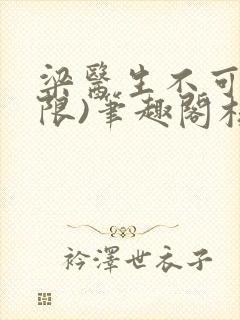 梁醫生不可
限)筆趣閣
衿澤世衣子